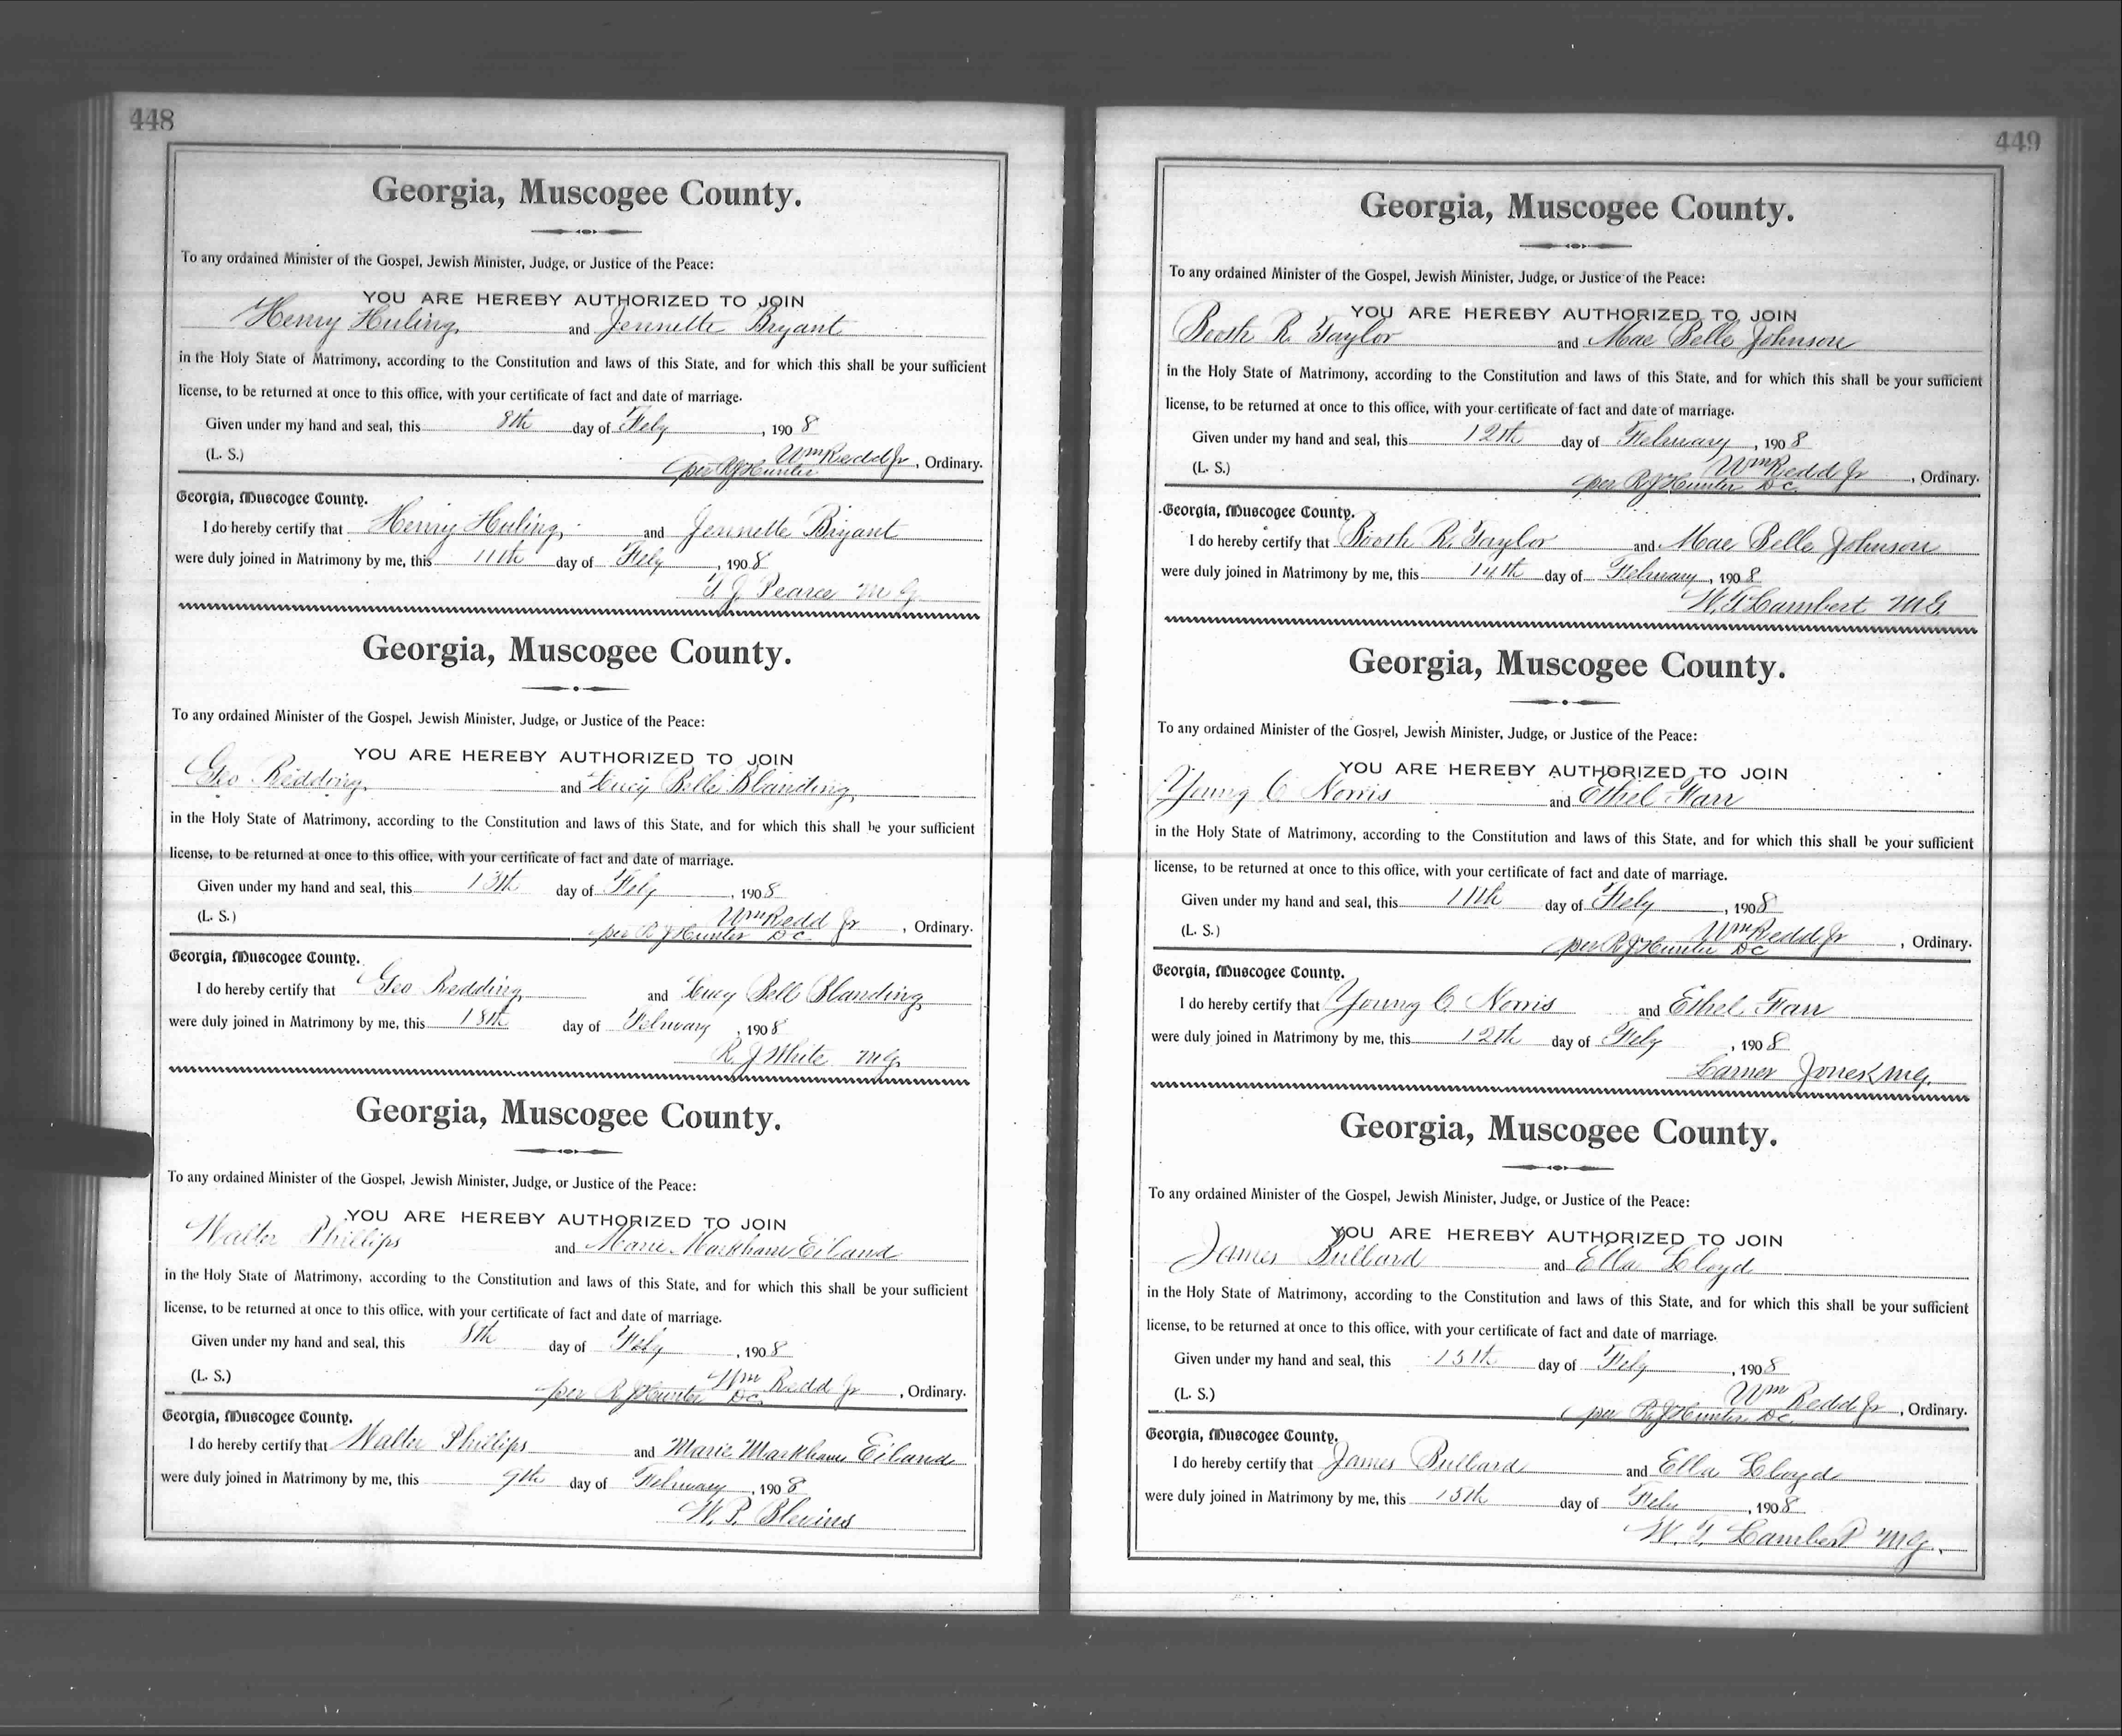 448
Georgia, Muscogee County.
To any ordained Minister of the Gospel, Jewish Minister, Judge, or Justice of the Peace:
YOU ARE HEREBY AUTHORIZED TO JOIN
Henry Huling and Jennette Bryant
in the Holy State of Matrimony, according to the Constitution and laws of this State, and for which this shall be your sufficient
license, to be returned at once to this office, with your certificate of fact and date of marriage.
Given under my hand and seal, this 8th day of Feby, 1908
(L. S.) Wm Redd Jr, Ordinary.
per R J Hunter
Georgia, Muscogee County.
I do hereby certify that Henry Huling and Jennette Bryant
were duly joined in Matrimony by me, this 11th day of Feby, 1908
J. Pearce M G
Georgia, Muscogee County.
To any ordained Minister of the Gospel, Jewish Minister, Judge, or Justice of the Peace:
YOU ARE HEREBY AUTHORIZED TO JOIN
Geo Redding and Lucy Belle Blanding
in the Holy State of Matrimony, according to the Constitution and laws of this State, and for which this shall be your sufficient
license, to be returned at once to this office, with your certificate of fact and date of marriage.
Given under my hand and seal, this 13th day of Feby, 1908
(L. S.) Wm Redd Jr, Ordinary.
per R J Hunter DC
Georgia, Muscogee County.
I do hereby certify that Geo Redding and Lucy Bell Blanding
were duly joined in Matrimony by me, this day of February, 1908
R. J White MG
Georgia, Muscogee County.
To any ordained Minister of the Gospel, Jewish Minister, Judge, or Justice of the Peace:
YOU ARE HEREBY AUTHORIZED TO JOIN
Walter Phillips and Marie Markham Eiland
in the Holy State of Matrimony, according to the Constitution and laws of this State, and for which this shall be your sufficient
license, to be returned at once to this office, with your certificate of fact and date of marriage.
Given under my hand and seal, this 8th day of Feby, 1908
(L. S.) Wm Redd Jr, Ordinary.
per R J Hunter DC
Georgia, Muscogee County.
I do hereby certify that Walter Phillips and Marie Markham Eiland
were duly joined in Matrimony by me, this 9th day of February, 1908
W. P. Blevins
449
Georgia, Muscogee County.
To any ordained Minister of the Gospel, Jewish Minister, Judge, or Justice of the Peace:
YOU ARE HEREBY AUTHORIZED TO JOIN
Booth R. Taylor and Mae Belle Johnson
in the Holy State of Matrimony, according to the Constitution and laws of this State, and for which this shall be your sufficient
license, to be returned at once to this office, with your certificate of fact and date of marriage.
Given under my hand and seal, this 12th day of February, 1908
(L. S.) Wm Redd Jr, Ordinary.
per R J Hunter DC
Georgia, Muscogee County.
I do hereby certify that Booth R. Taylor and Mae Belle Johnson
were duly joined in Matrimony by me, this 14th day of February, 1908
W. T Lambert MG
Georgia, Muscogee County.
To any ordained Minister of the Gospel, Jewish Minister, Judge, or Justice of the Peace:
YOU ARE HEREBY AUTHORIZED TO JOIN
Young C Norris and Ethel Farr
in the Holy State of Matrimony, according to the Constitution and laws of this State, and for which this shall be your sufficient
license, to be returned at once to this office, with your certificate of fact and date of marriage.
Given under my hand and seal, this 11th day of Feby, 1908
(L. S.) Wm Redd Jr, Ordinary.
per R J Hunter DC
Georgia, Muscogee County.
I do hereby certify that Young C. Norris and Ethel Farr
were duly joined in Matrimony by me, this 12th day of Feby, 1908
Jones MG.
Georgia, Muscogee County.
To any ordained Minister of the Gospel, Jewish Minister, Judge, or Justice of the Peace:
YOU ARE HEREBY AUTHORIZED TO JOIN
James Bullard and Ella Lloyd
in the Holy State of Matrimony, according to the Constitution and laws of this State, and for which this shall be your sufficient
license, to be returned at once to this office, with your certificate of fact and date of marriage.
Given under my hand and seal, this 15th day of Feby, 1908
(L. S.) Wm Redd Jr, Ordinary.
per R J Hunter DC
Georgia, Muscogee County.
I do hereby certify that James Bullard and Ella Lloyd
were duly joined in Matrimony by me, this 15th day of Feby, 1908
W. T. Lambert MG.